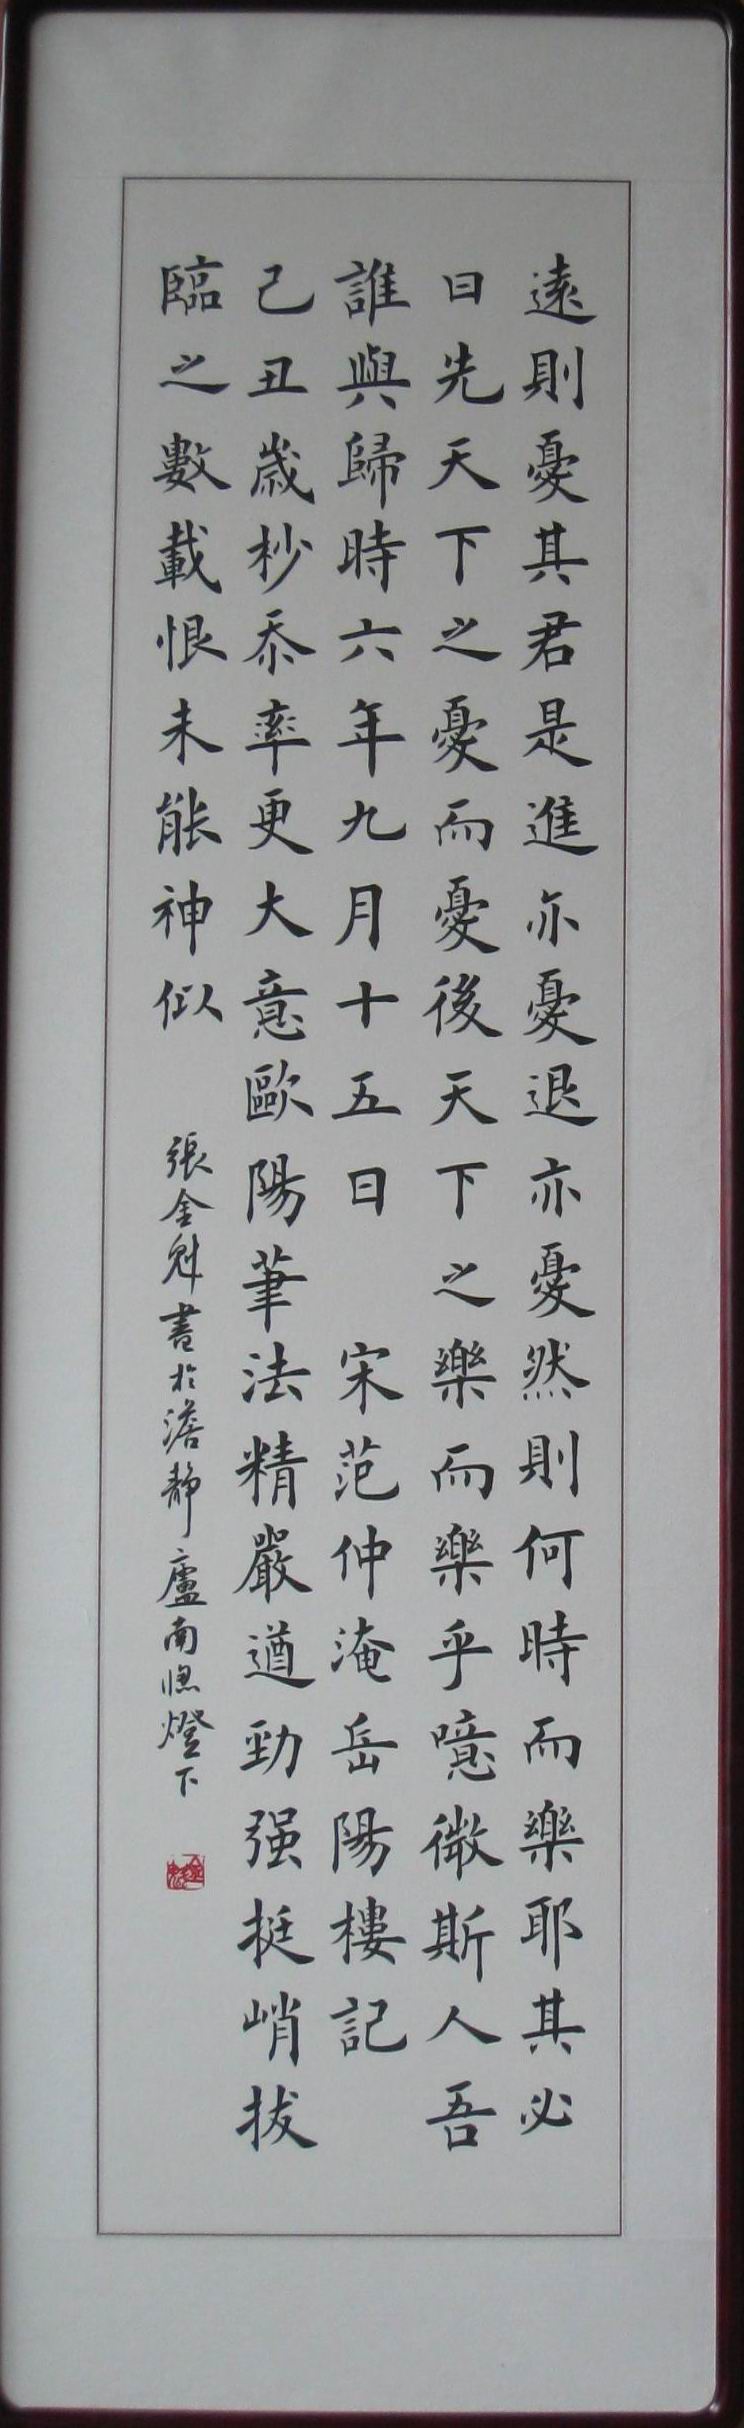 遠則憂其君是進亦憂退亦憂然則何時而樂耶其必
曰先天下之憂而憂後天下之樂而樂乎噫微斯人吾
誰與歸時六年九月十五日 宋范仲淹岳陽樓記
己丑歲杪忝率更大意歐陽筆法精嚴遒勁强挺峭拔
臨之數載恨未能神似 張金魁書於澹靜廬南窗燈下